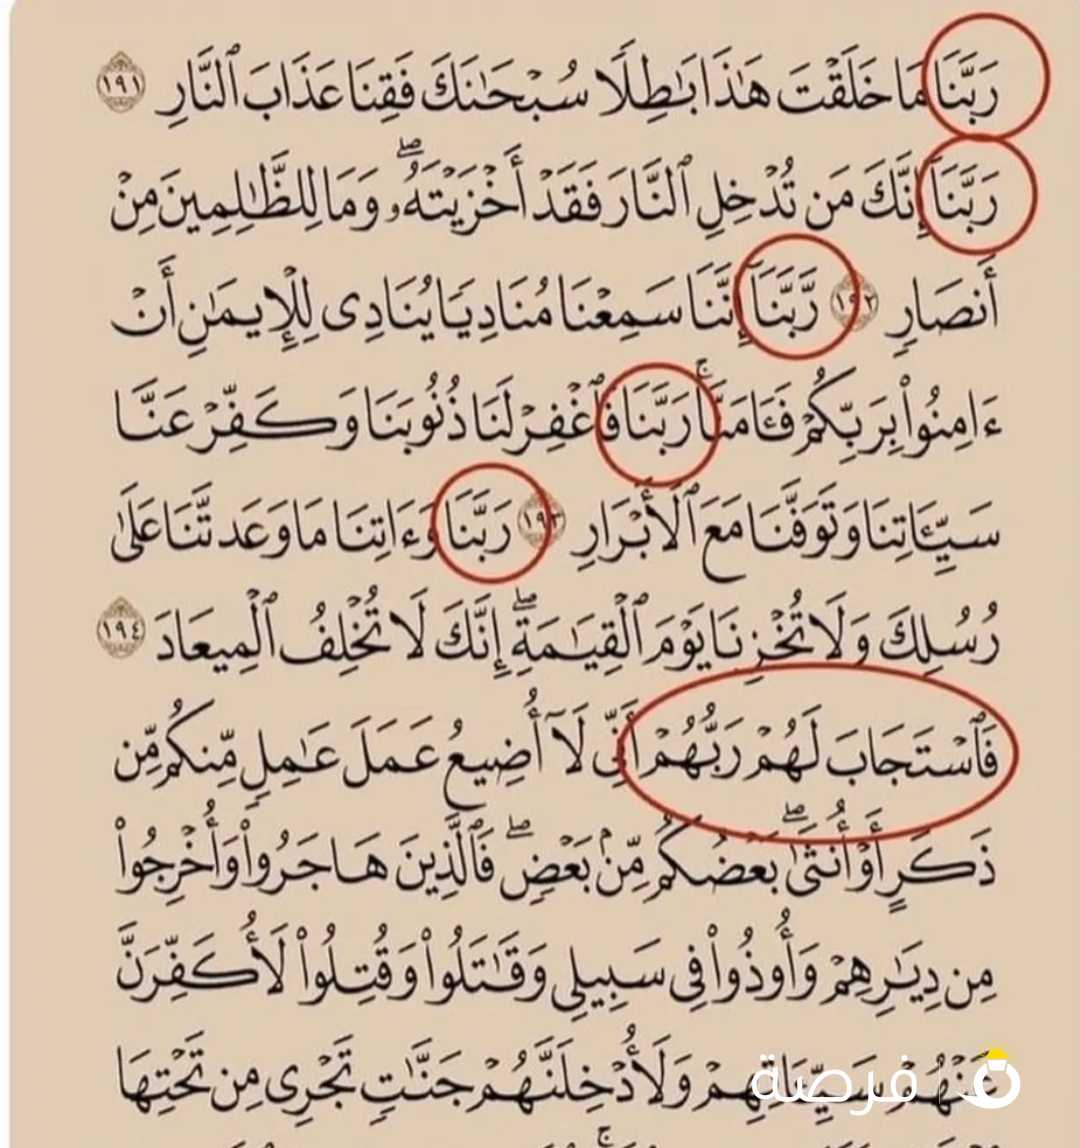 رَبَّنَا مَا خَلَقْتَ هَٰذَا بَٰطِلًا سُبْحَٰنَكَ فَقِنَا عَذَابَ ٱلنَّارِ ١٩١
رَبَّنَآ إِنَّكَ مَن تُدْخِلِ ٱلنَّارَ فَقَدْ أَخْزَيْتَهُۥ ۖ وَمَا لِلظَّٰلِمِينَ مِنْ
أَنصَارٍ ١٩٢ رَّبَّنَآ إِنَّنَا سَمِعْنَا مُنَادِيًا يُنَادِى لِلْإِيمَٰنِ أَنْ
ءَامِنُوا۟ بِرَبِّكُمْ فَـَٔامَنَّا ۚ رَبَّنَا فَٱغْفِرْ لَنَا ذُنُوبَنَا وَكَفِّرْ عَنَّا
سَيِّـَٔاتِنَا وَتَوَفَّنَا مَعَ ٱلْأَبْرَارِ ١٩٣ رَبَّنَا وَءَاتِنَا مَا وَعَدتَّنَا عَلَىٰ
رُسُلِكَ وَلَا تُخْزِنَا يَوْمَ ٱلْقِيَٰمَةِ ۖ إِنَّكَ لَا تُخْلِفُ ٱلْمِيعَادَ ١٩٤
فَٱسْتَجَابَ لَهُمْ رَبُّهُمْ أَنِّى لَآ أُضِيعُ عَمَلَ عَٰمِلٍ مِّنكُم مِّن
ذَكَرٍ أَوْ أُنثَىٰ ۖ بَعْضُكُم مِّنۢ بَعْضٍ ۖ فَٱلَّذِينَ هَاجَرُوا۟ وَأُخْرِجُوا۟
مِن دِيَٰرِهِمْ وَأُوذُوا۟ فِى سَبِيلِى وَقَٰتَلُوا۟ وَقُتِلُوا۟ لَأُكَفِّرَنَّ
عَنْهُمْ سَيِّـَٔاتِهِمْ وَلَأُدْخِلَنَّهُمْ جَنَّٰتٍ تَجْرِى مِن تَحْتِهَا
فرصة